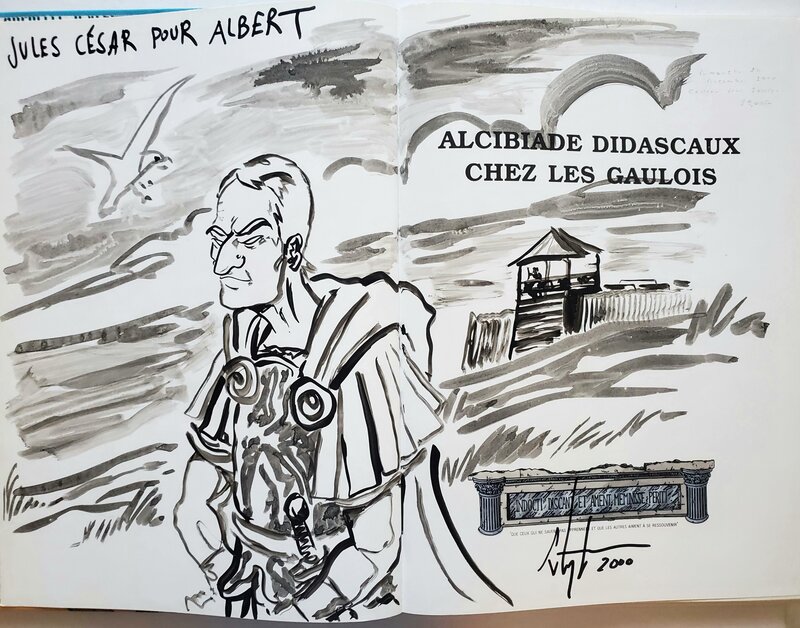 JULES CÉSAR POUR ALBERT
ALCIBIADE DIDASCAUX
CHEZ LES GAULOIS
INDOCTI DISCANT ET AMENT MEMINISSE PERITI
"QUE CEUX QUI NE SAVENT PAS APPRENNENT ET QUE LES AUTRES AIMENT À SE RESSOUVENIR"
2000